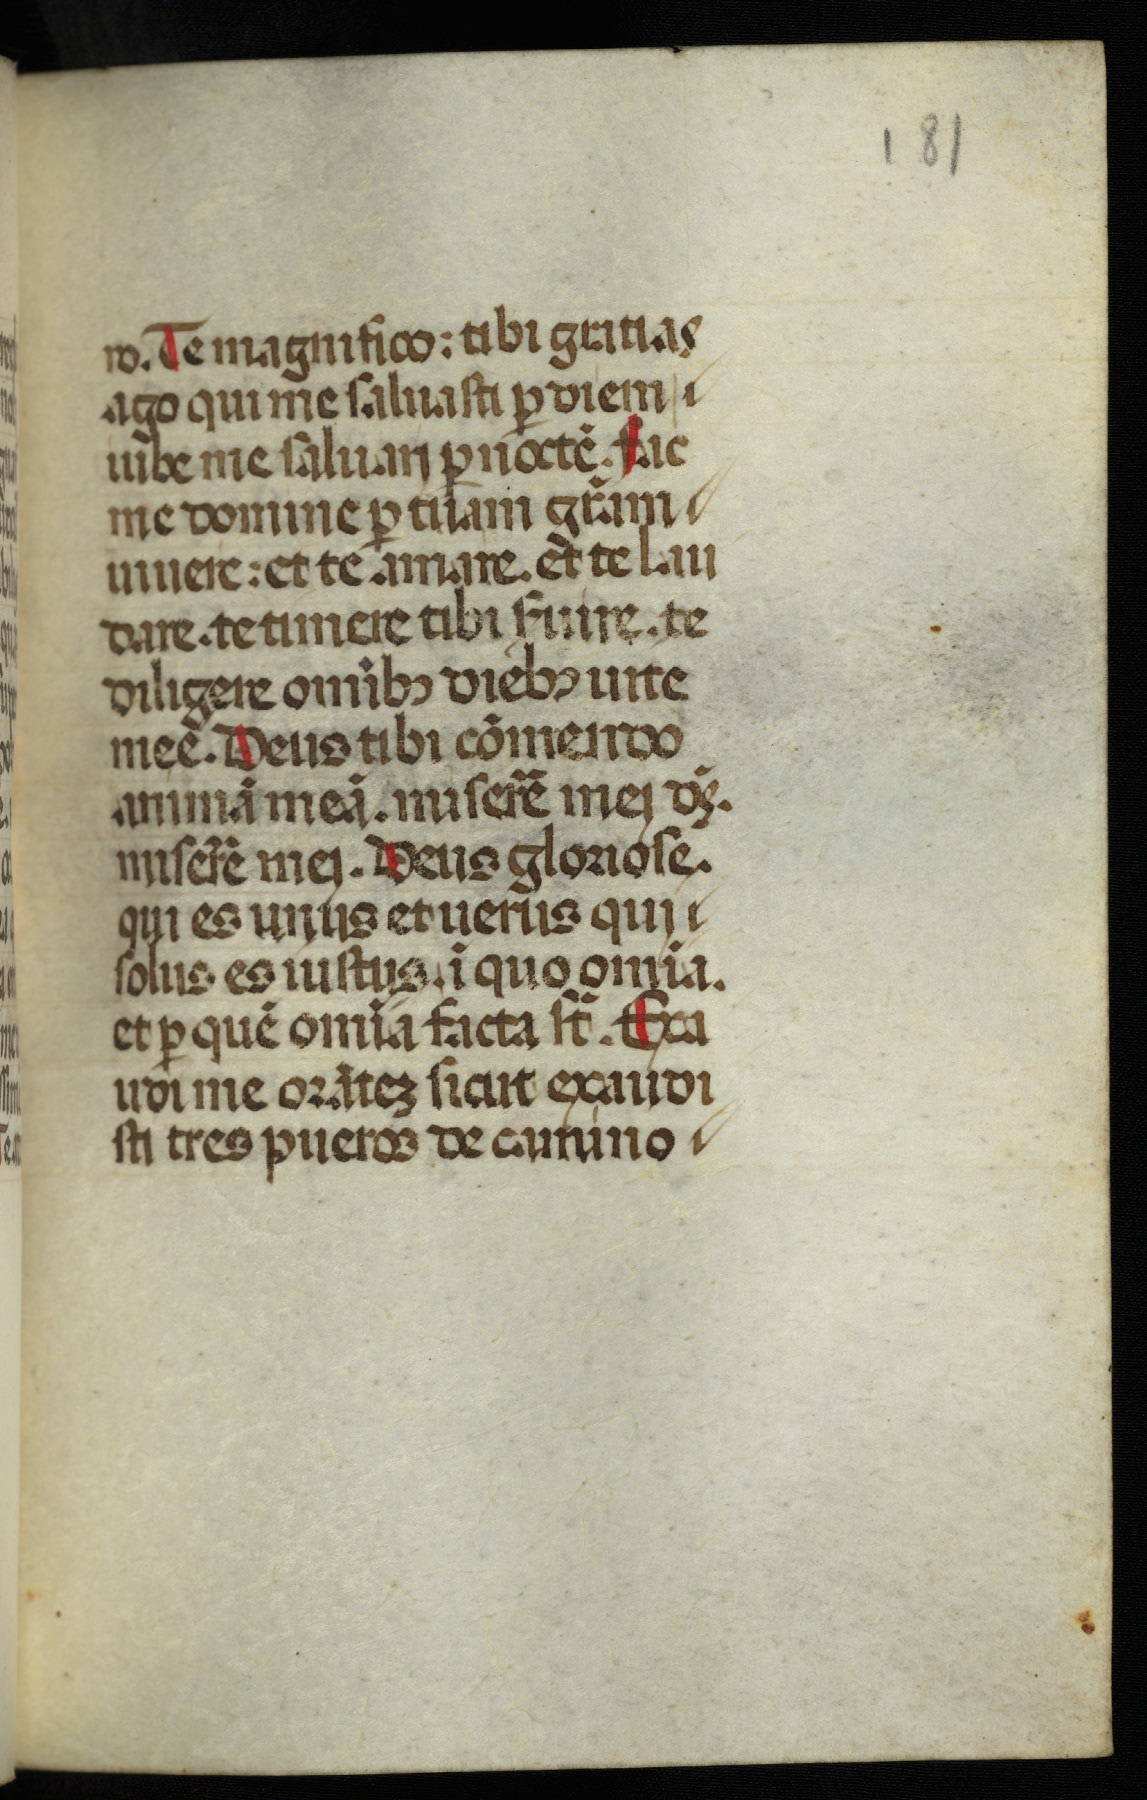 181
ro. Te magnifico: tibi gratias
ago qui me saluasti ꝑ diem
iube me saluari ꝑ noctē. Fac
me domine ꝑ tuam gr̄am
uiuere: et te amare. et te lau
dare. te timere tibi s̓uire. te
diligere omibꝰ diebꝰ uite
mee. Deus tibi cōmendo
animā meā. miserēr mei dn̄e.
miserēr mei. Deus gloriose.
qui es unus et uerus qui
solus es iustus. ī quo omīa.
et ꝑ quē omīa facta st̄. Exa
udi me orātez sicut exaudi
sti tres pueros de camino